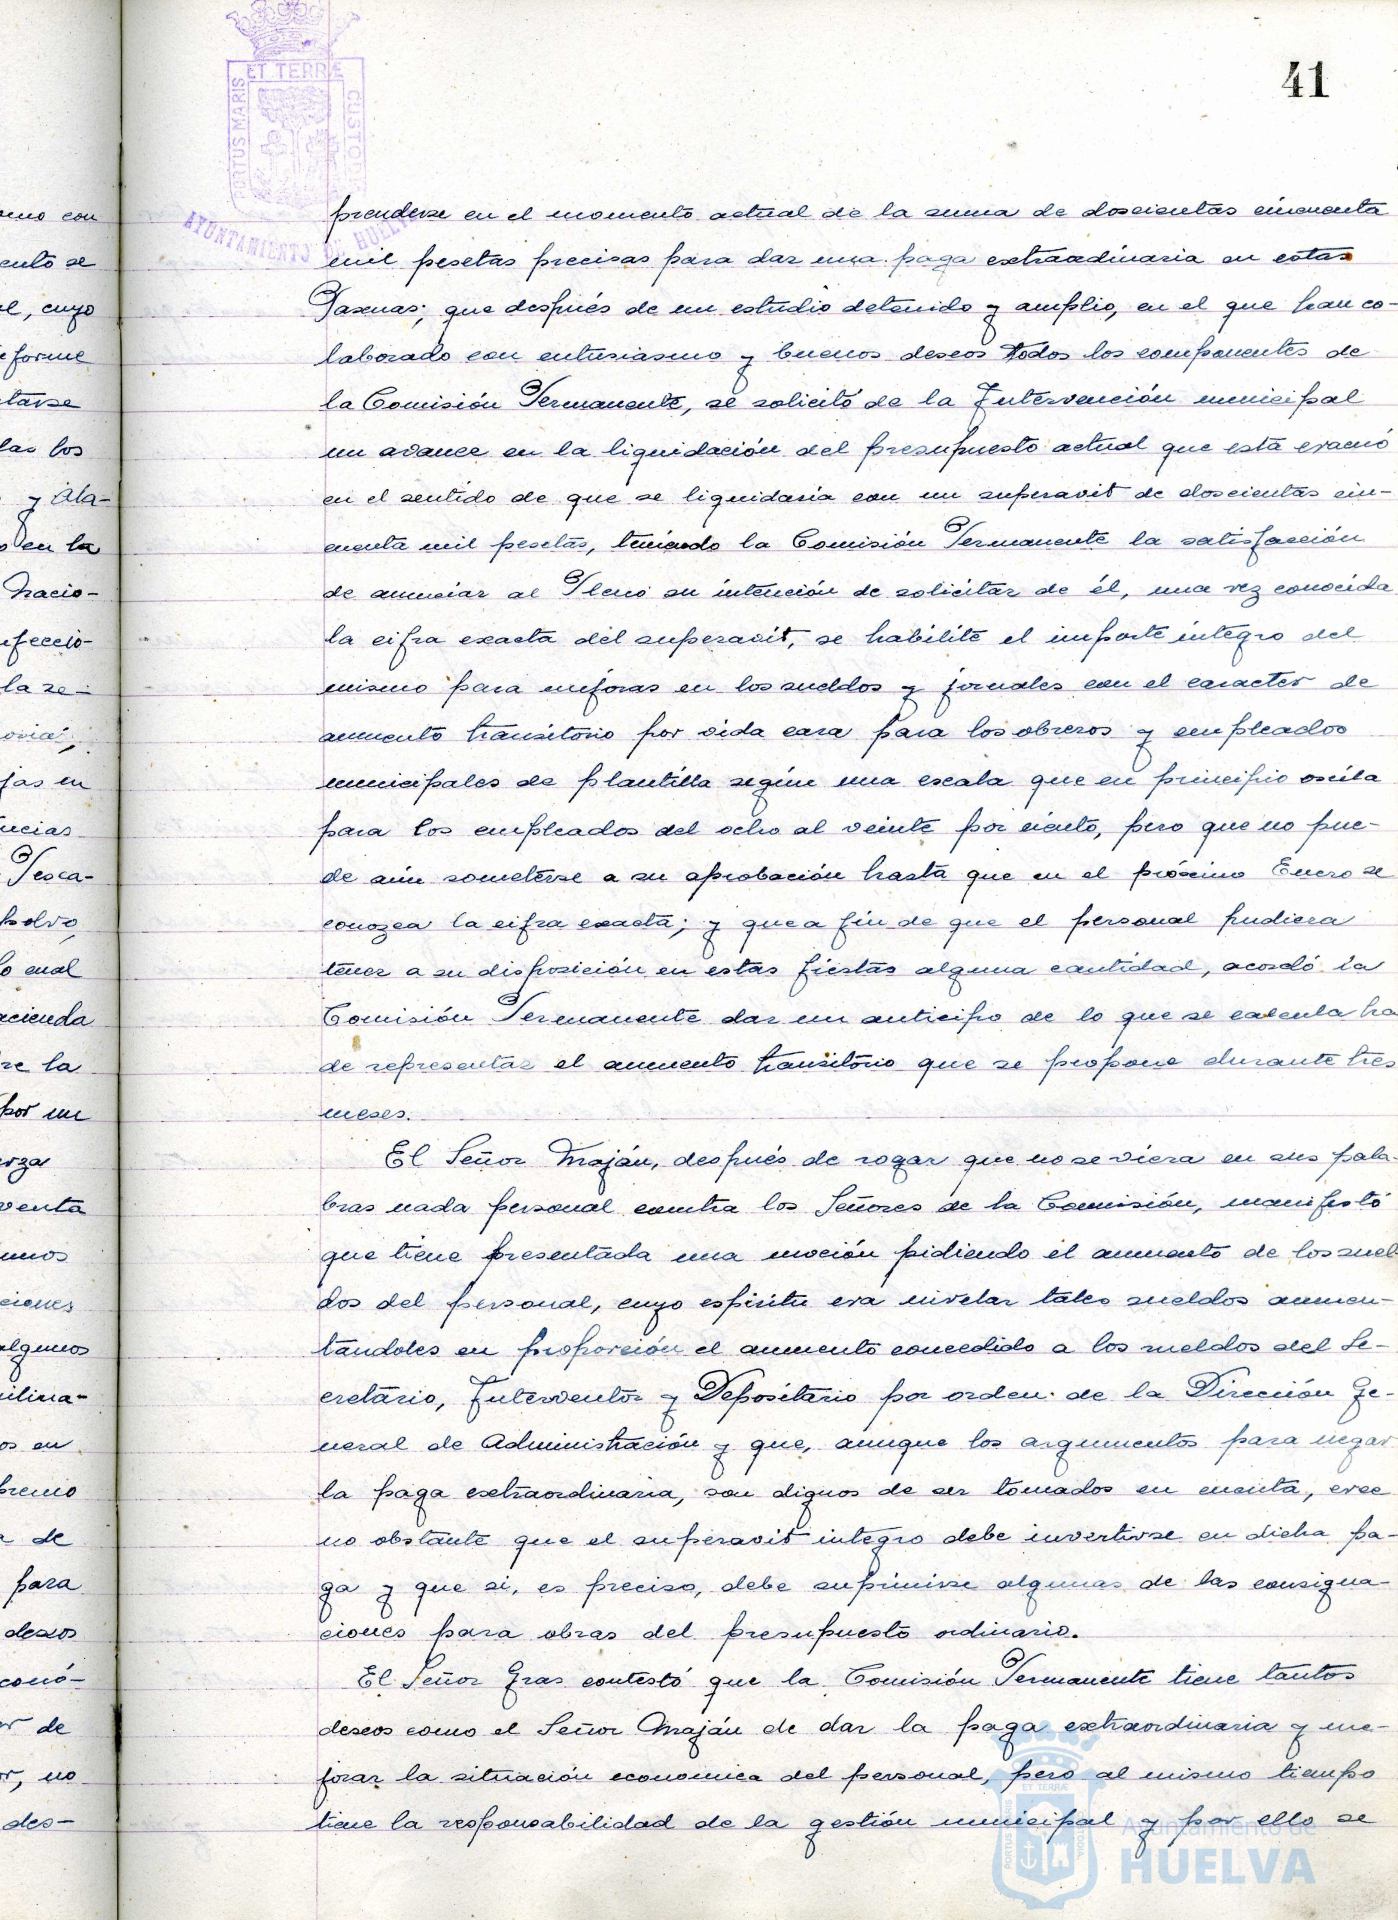 41
ET TERRÆ
PORTUS MARIS
CUSTODIA
AYUNTAMIENTO DE HUELVA
prenderse en el momento actual de la suma de doscientas cincuenta
mil pesetas precisas para dar una paga extraordinaria en estas
Pascuas; que después de un estudio detenido y amplio, en el que han co-
laborado con entusiasmo y buenos deseos todos los componentes de
la Comisión Permanente, se solicitó de la Intervención municipal
un avance en la liquidación del presupuesto actual que esta evacuó
en el sentido de que se liquidaria con un superavit de doscientas cin-
cuenta mil pesetas, teniendo la Comisión Permanente la satisfacción
de anunciar al Pleno su intención de solicitar de él, una vez conocida
la cifra exacta del superavit, se habilite el importe integro del
mismo para mejoras en los sueldos y jornales con el caracter de
aumento transitorio por vida cara para los obreros y empleados
municipales de plantilla según una escala que en principio oscila
para los empleados del ocho al veinte por ciento, pero que no pue-
de aún someterse a su aprobación hasta que en el próximo Enero se
conozca la cifra exacta; y que a fin de que el personal pudiera
tener a su disposición en estas fiestas alguna cantidad, acordó la
Comisión Permanente dar un anticipo de lo que se calcula ha
de representar el aumento transitorio que se propone durante tres
meses.
El Señor Maján, después de rogar que no se viera en sus pala-
bras nada personal contra los Señores de la Comisión, manifestó
que tiene presentada una moción pidiendo el aumento de los suel-
dos del personal, cuyo espiritu era nivelar tales sueldos aumen-
tandoles en proporción el aumento concedido a los sueldos del Se-
cretario, Interventor y Depositario por orden de la Dirección Ge-
neral de Administración y que, aunque los argumentos para negar
la paga extraordinaria, son dignos de ser tomados en cuenta, cree
no obstante que el superavit integro debe invertirse en dicha pa-
ga y que si, es preciso, debe suprimirse algunas de las consigna-
ciones para obras del presupuesto ordinario.
El Señor Gras contestó que la Comisión Permanente tiene tantos
deseos como el Señor Maján de dar la paga extraordinaria y me-
jorar la situación economica del personal, pero al mismo tiempo
tiene la responsabilidad de la gestión municipal y por ello se
Ayuntamiento de
HUELVA